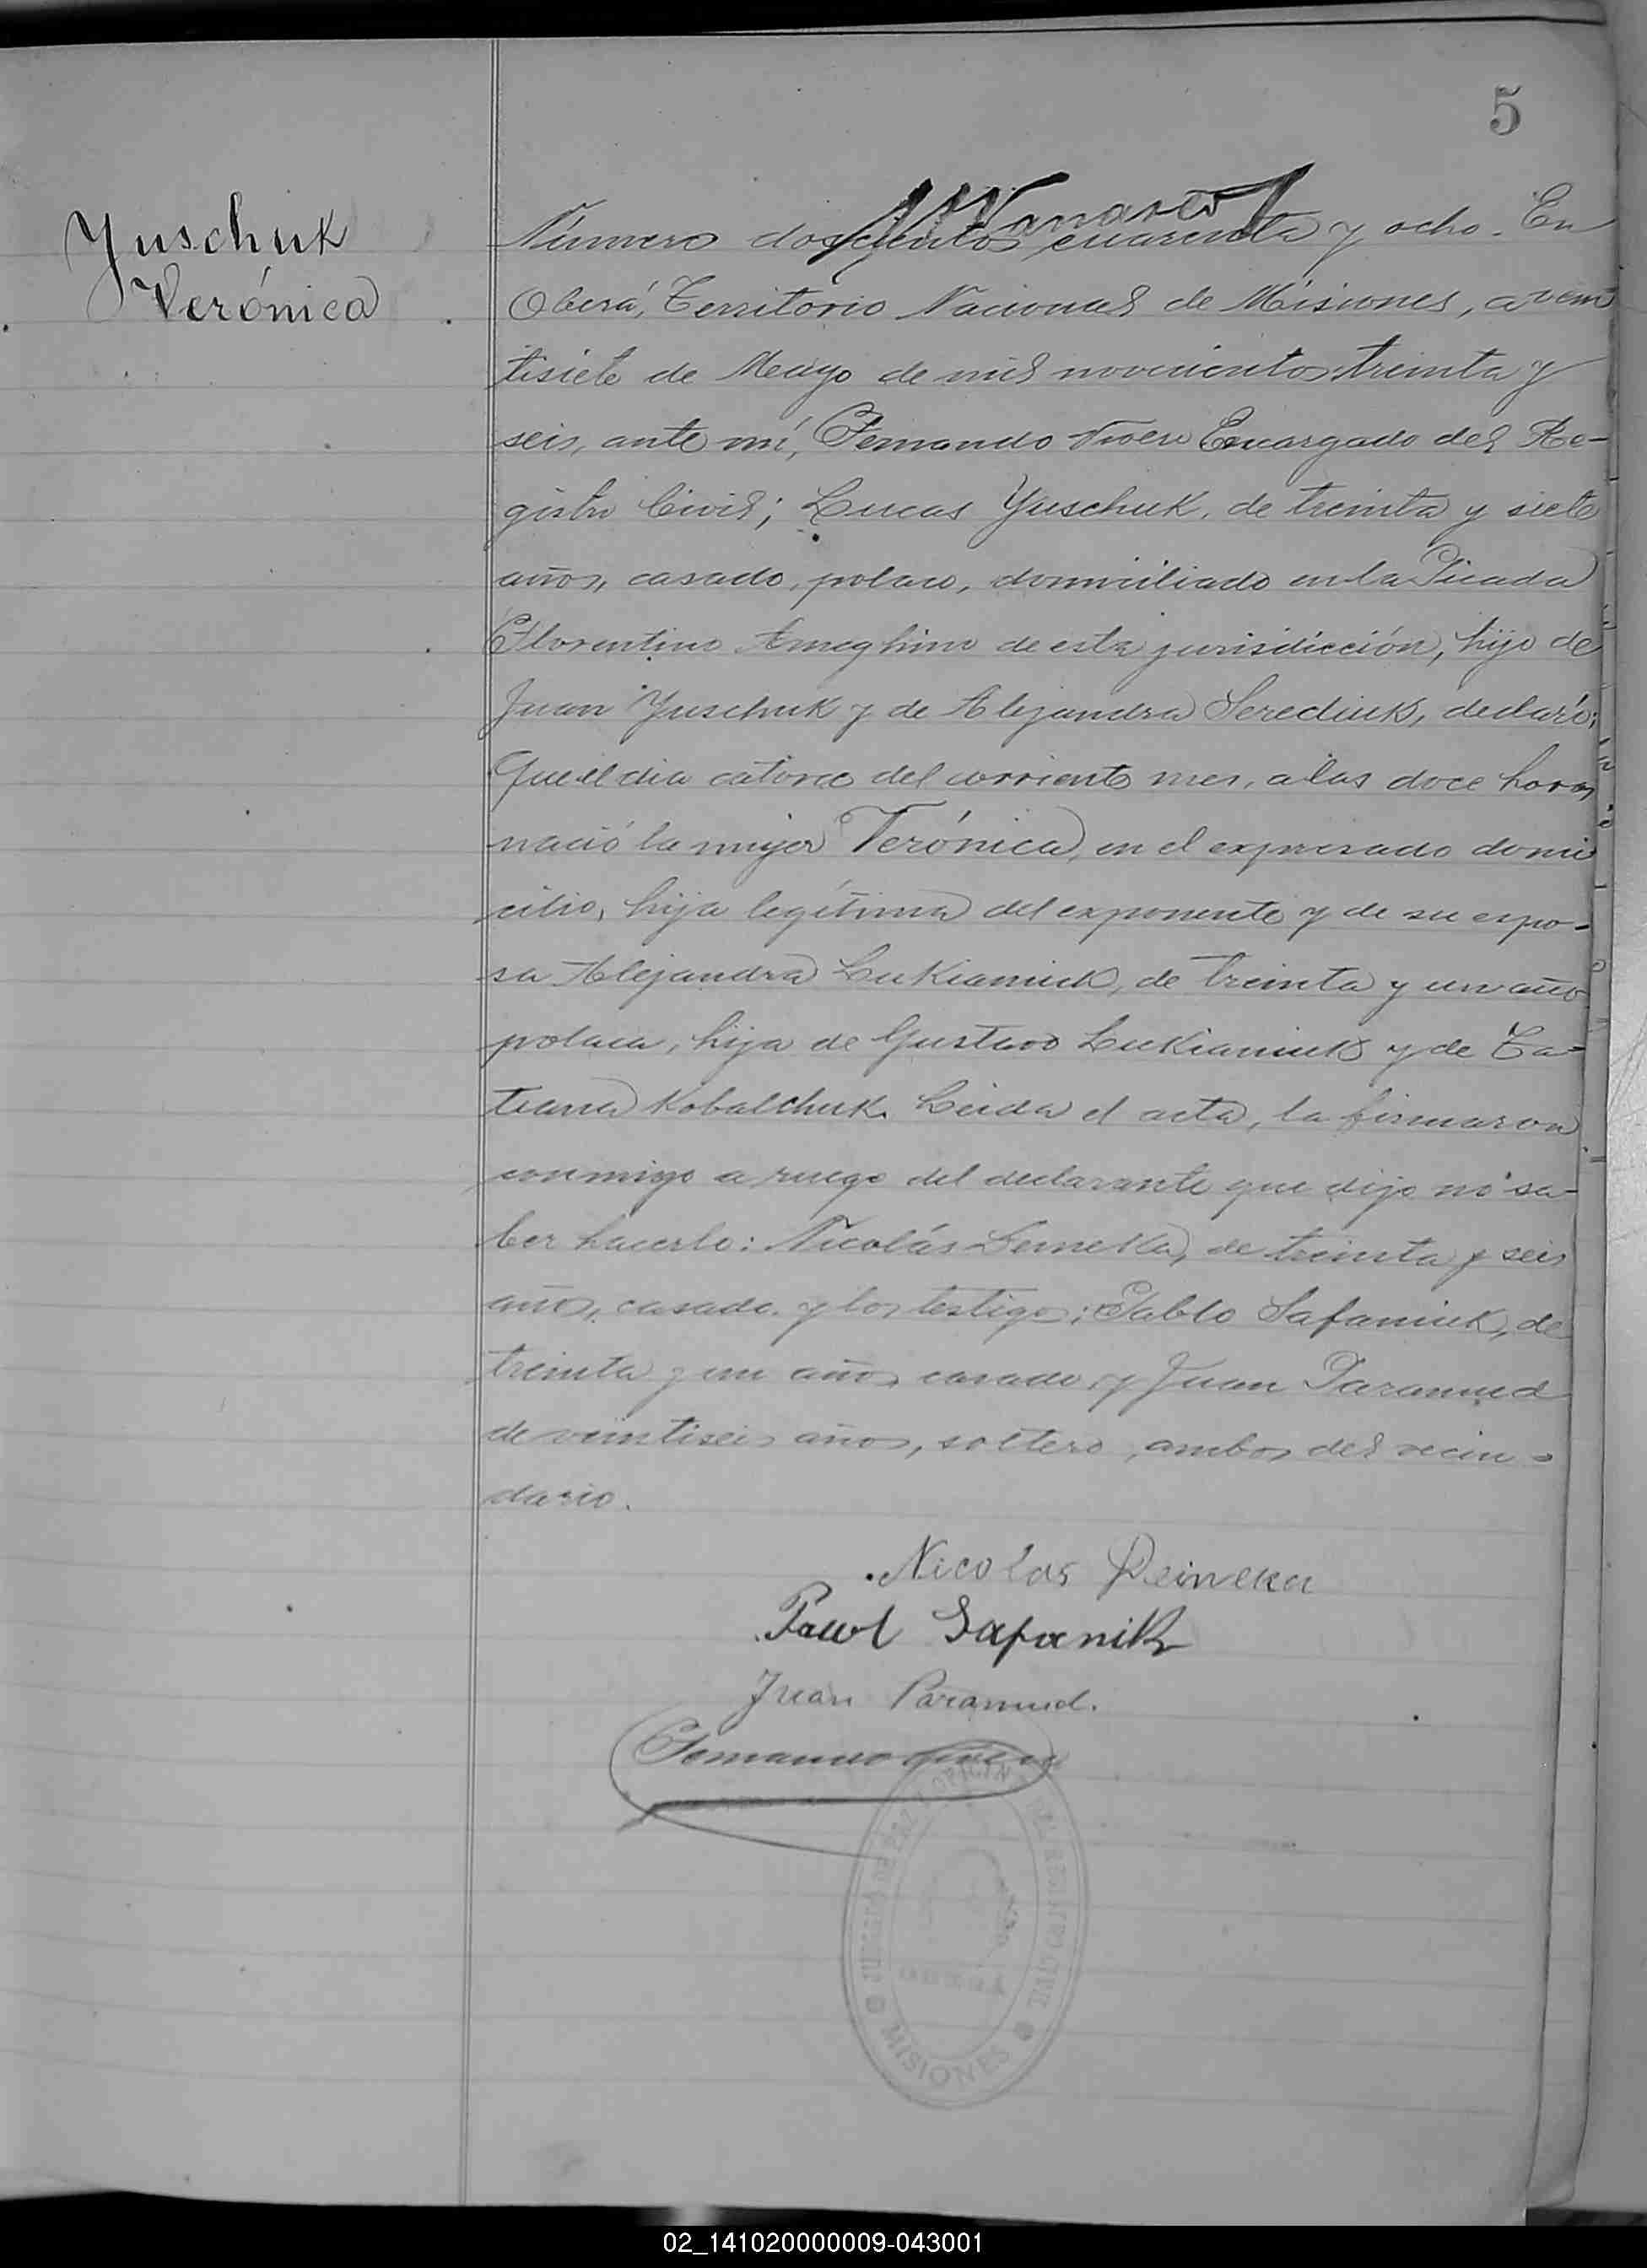 5
Yuschuk
Verónica
Número doscientos cuarenta y ocho. En
Oberá, Territorio Nacional de Misiones, a vein
tisiete de Mayo de mil novecientos treinta y
seis, ante mí, Fernando Encargado del Re-
gistro Civil; Lucas Yuschuk, de treinta y siete
años, casado, polaco, domiciliado en la Picada
Florentino Ameghino de esta jurisdicción, hijo de
Juan Yuschuk y de Alejandra Serediuk, declaró:
Que el dia catorce del corriente mes, a las doce horas
nació la mujer Verónica, en el expresado domi
cilio, hija legítima del exponente y de su espo-
sa Alejandra Lukianiuk, de treinta y un año
polaca, hija de Gustavo Lukianiuk y de Ta-
tiana Kobalchuk. Leida el acta, la firmaron
conmigo a ruego del declarante que dijo no sa-
ber hacerlo: Nicolás de treinta y seis
años, casado y los testigos: Pablo Safaniuk, de
treinta y un años casado y Juan Paramud
de veintiseis años, soltero, ambos del vecin-
dario.
Nicolas Deineka
Pawl Safanik
Juan Paramud.
Fernando
MISIONES
02_141020000009-043001